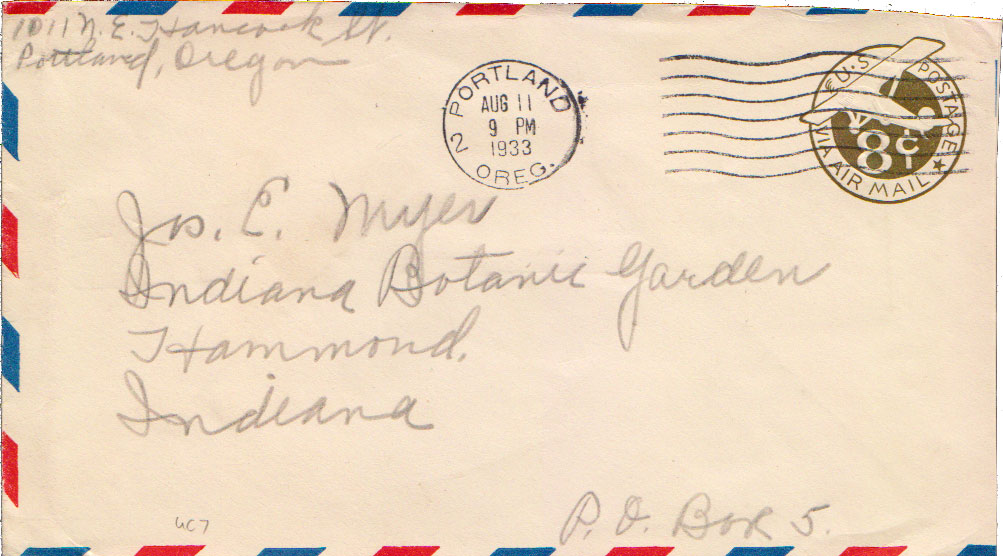 1011 N. E. Hancock St.
Portland, Oregon
PORTLAND
AUG 11
9 PM
1933
2
OREG.
U.S. POSTAGE
8¢
VIA AIR MAIL
Jos. E. Myer
Indiana Botanic Garden
Hammond,
Indiana
P. O. Box 5.
UC7